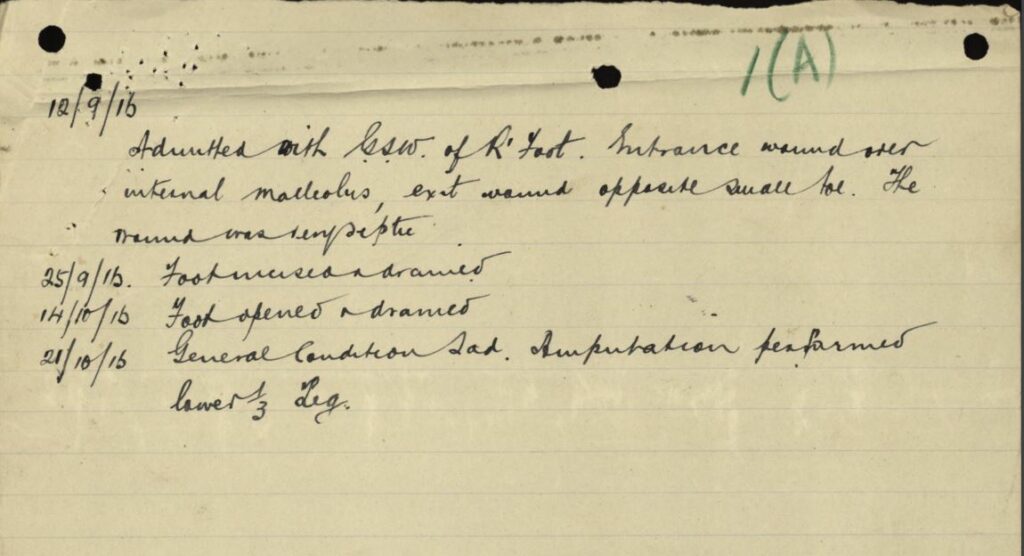 1(A)
12/9/16
Admitted with G.S.W. of Rt Foot. Entrance wound over
internal malleolus, exit wound opposite small toe. The
wound was very septic
25/9/16. Foot incised & drained
14/10/16 Foot opened & drained
21/10/16 General Condition bad. Amputation performed
lower 1/3 Leg.